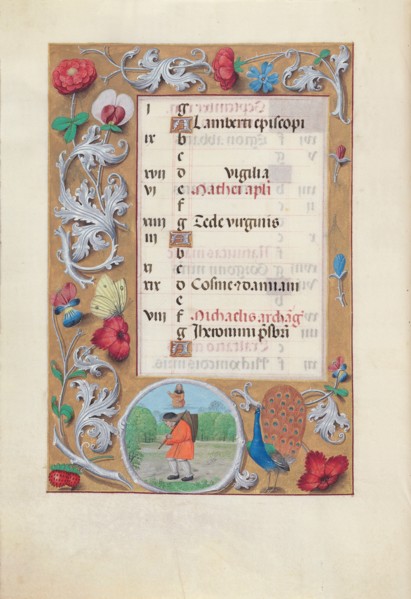 i g
A Lamberti episcopi
ix b
c
xvii d Vigilia
vi e Mathei apli
f
xiiii g Tecle virginis
iii A
b
xi c
xix d Cosme ⁊ damiani
e
viii f Michaelis archāg
g Jheronimi p̄sbri
A